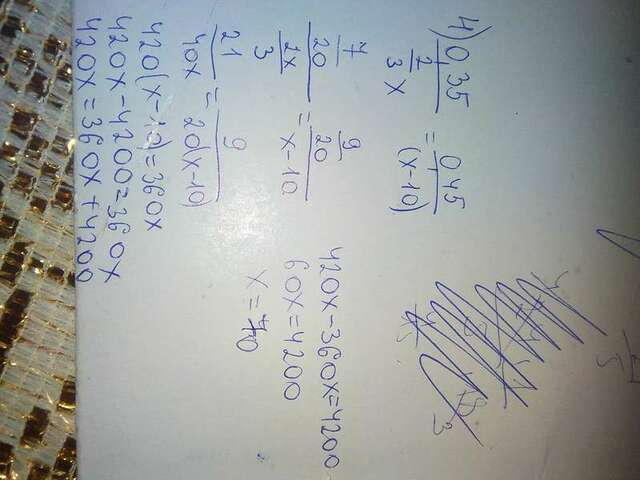 4) 0,35 / (2/3 x) = 0,45 / (x-10)
(7/20) / (2x/3) = (9/20) / (x-10)
21/40x = 9/20(x-10)
420(x-10)=360x
420x-4200=360x
420x=360x+4200
420x-360x=4200
60x=4200
x=70